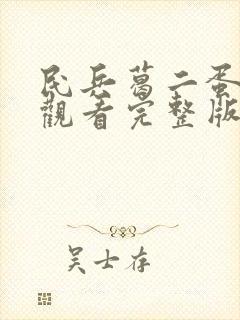 民兵葛二蛋
觀看完整版
吴士存